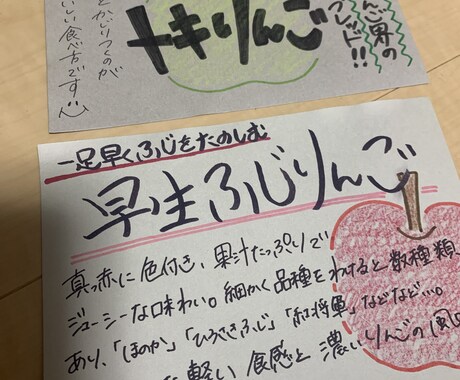 りんご界の
ブレッド!!
トキりんご
とかじりつくのが
いい食べ方です
一足早くふじをたのしむ
早生ふじりんご
真っ赤に色付き、果汁たっぷりで
ジューシーな味わい。細かく品種をわけると数種類
あり、「ほのか」「ひろさきふじ」「紅将軍」などなど…。
軽い食感と濃いりんごの風